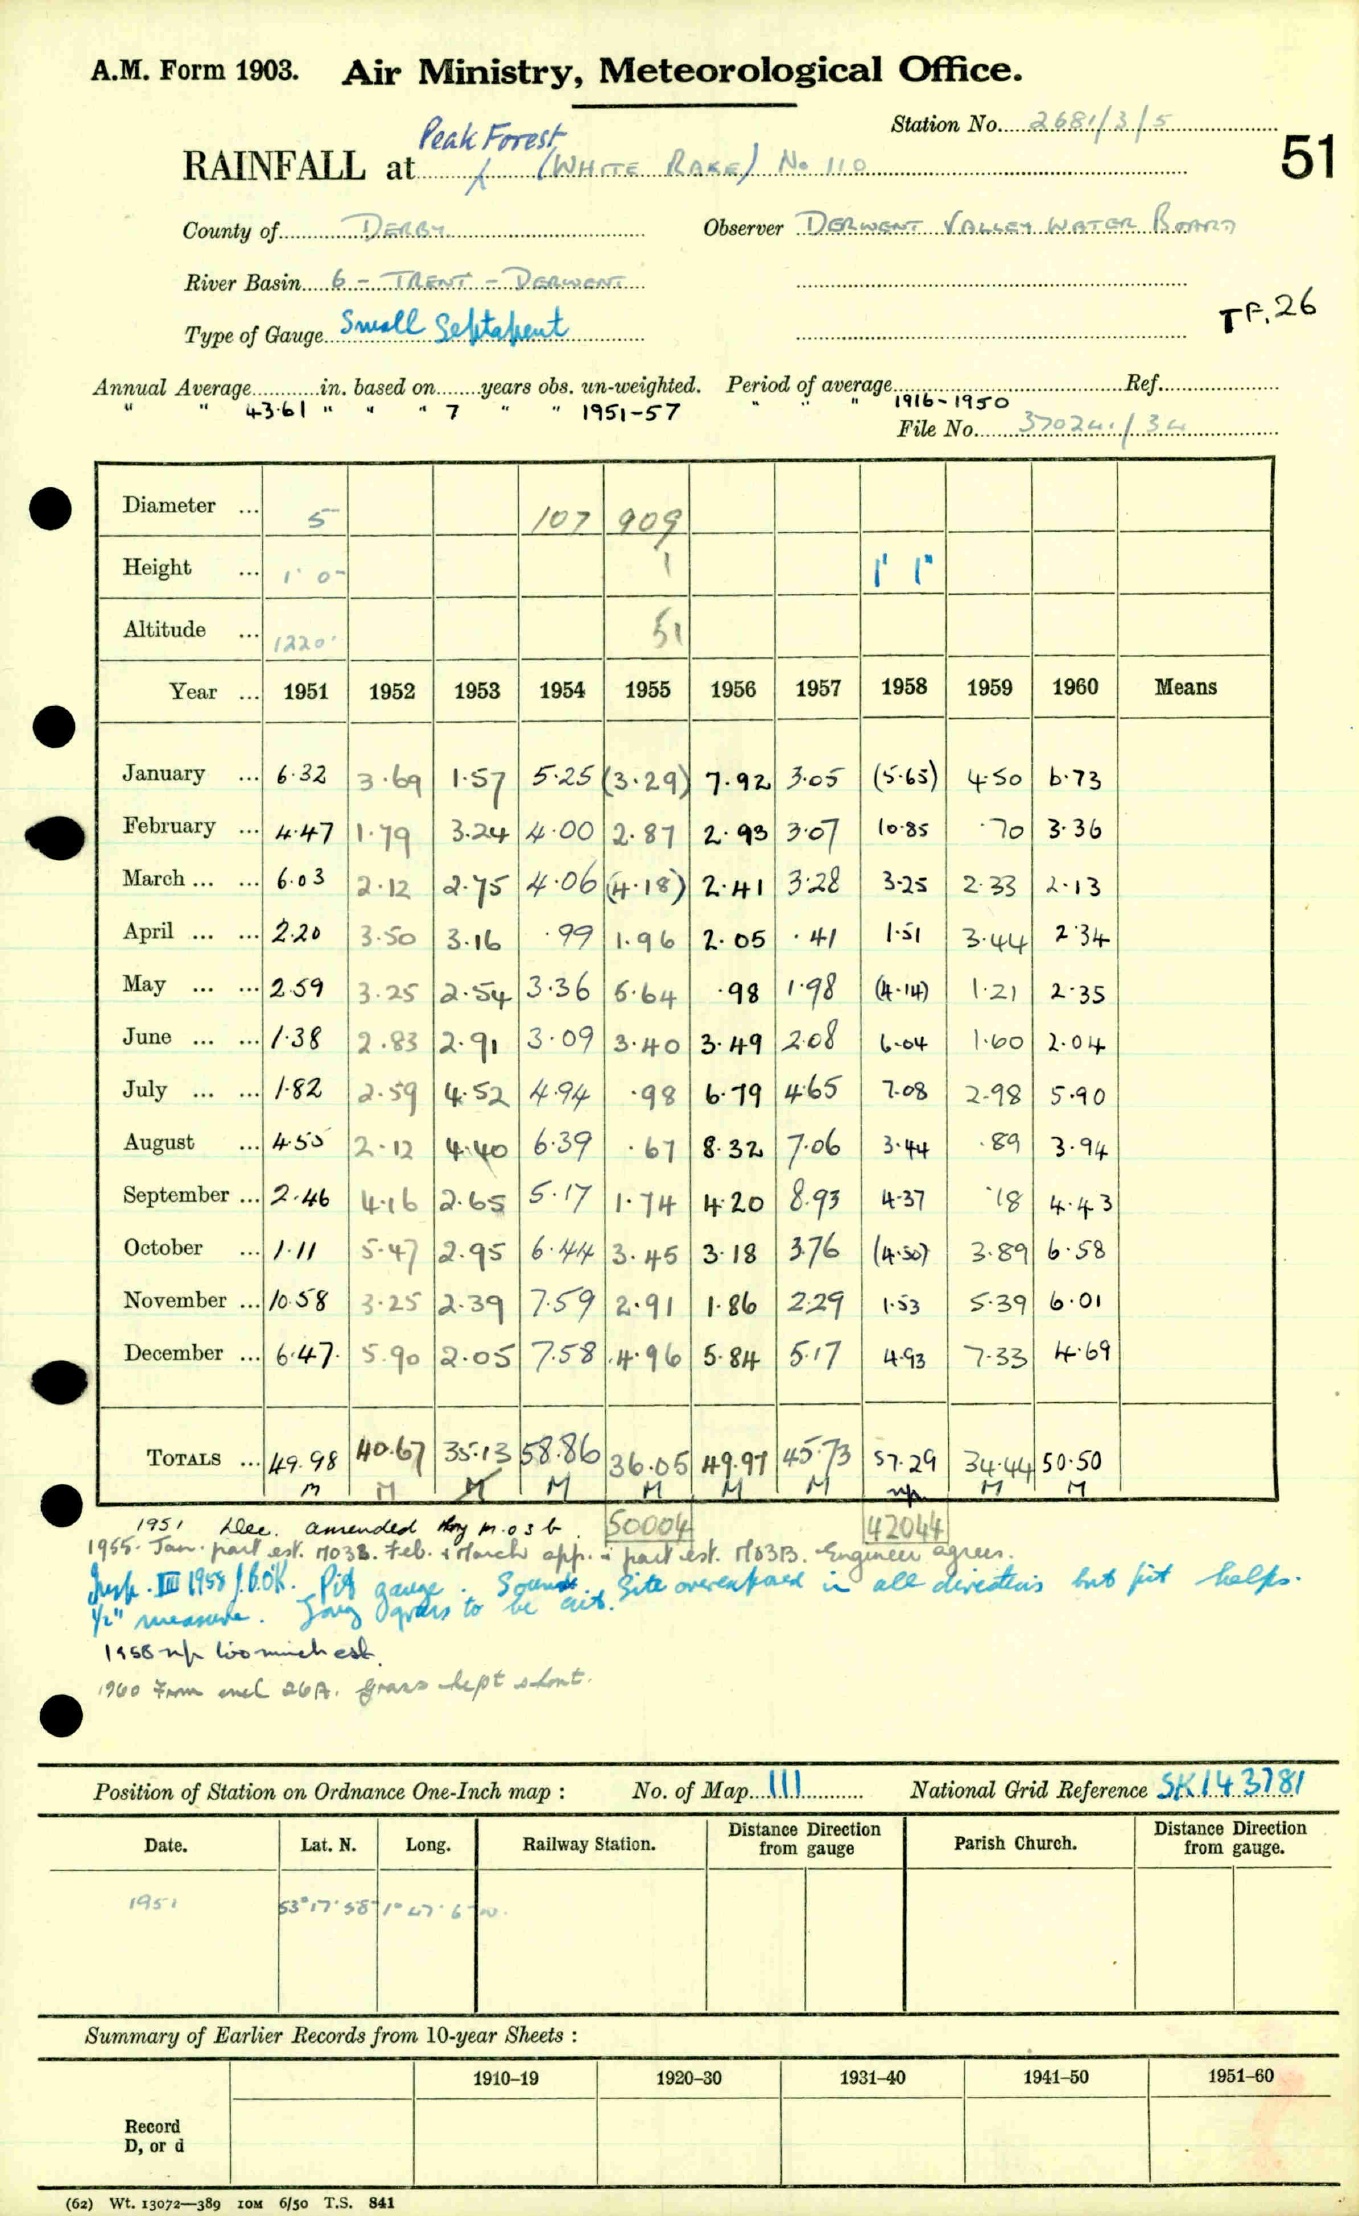 A.M. Form 1903. Air Ministry, Meteorological Office.
Station No. 2681/3/5
51
Peak Forest
RAINFALL at (WHITE RAKE) No 110
County of DERBY Observer DERWENT VALLEY WATER BOARD
River Basin 6 - TRENT - DERWENT
Type of Gauge Small Septapent
T F. 26
Annual Average in. based on years obs. un-weighted. Period of average Ref.
" " 43·61 " " " 7 " " 1951-57 " " " 1916-1950
File No. 370241/34
Diameter ... 5 107 909
Height ... 1' 0" 1 1' 1"
Altitude ... 1220' 51
Year ... 1951 1952 1953 1954 1955 1956 1957 1958 1959 1960 Means
January ... 6·32 3·69 1·57 5·25 (3·29) 7·92 3·05 (5·65) 4·50 6·73
February ... 4·47 1·79 3·24 4·00 2·87 2·93 3·07 10·85 ·70 3·36
March ... ... 6·03 2·12 2·75 4·06 (4·18) 2·41 3·28 3·25 2·33 2·13
April ... ... 2·20 3·50 3·16 ·99 1·96 2·05 ·41 1·51 3·44 2·34
May ... ... 2·59 3·25 2·54 3·36 5·64 ·98 1·98 (4·14) 1·21 2·35
June ... ... 1·38 2·83 2·91 3·09 3·40 3·49 2·08 6·04 1·60 2·04
July ... ... 1·82 2·59 4·52 4·94 ·98 6·79 4·65 7·08 2·98 5·90
August ... 4·55 2·12 4·40 6·39 ·67 8·32 7·06 3·44 ·89 3·94
September ... 2·46 4·16 2·65 5·17 1·74 4·20 8·93 4·37 ·18 4·43
October ... 1·11 5·47 2·95 6·44 3·45 3·18 3·76 (4·50) 3·89 6·58
November ... 10·58 3·25 2·39 7·59 2·91 1·86 2·29 1·53 5·39 6·01
December ... 6·47 5·90 2·05 7·58 4·96 5·84 5·17 4·93 7·33 4·69
TOTALS ... 49·98 40·67 35·13 58·86 36·05 49·97 45·73 57·29 34·44 50·50
M M M M M M M np M M
1951 Dec. amended by M.O3b. 50004 42044
1955. Jan. part est. MO3B. Feb. & March app. & part est. MO3B. Engineer agrees.
Insp. III 1958 J.G.OK. Pit gauge. Sound. Site overexposed in all directions but pit helps.
1/2" measure. Long grass to be cut.
1958 np too much est.
1960 From encl 26A. Grass kept short.
Position of Station on Ordnance One-Inch map : No. of Map 111 National Grid Reference SK 143781
Date. Lat. N. Long. Railway Station. Distance Direction from gauge Parish Church. Distance Direction from gauge.
1951 53° 17' 58" 1° 47' 6" W.
Summary of Earlier Records from 10-year Sheets :
1910–19 1920–30 1931–40 1941–50 1951–60
Record
D, or d
(62) Wt. 13072—389 10M 6/50 T.S. 841